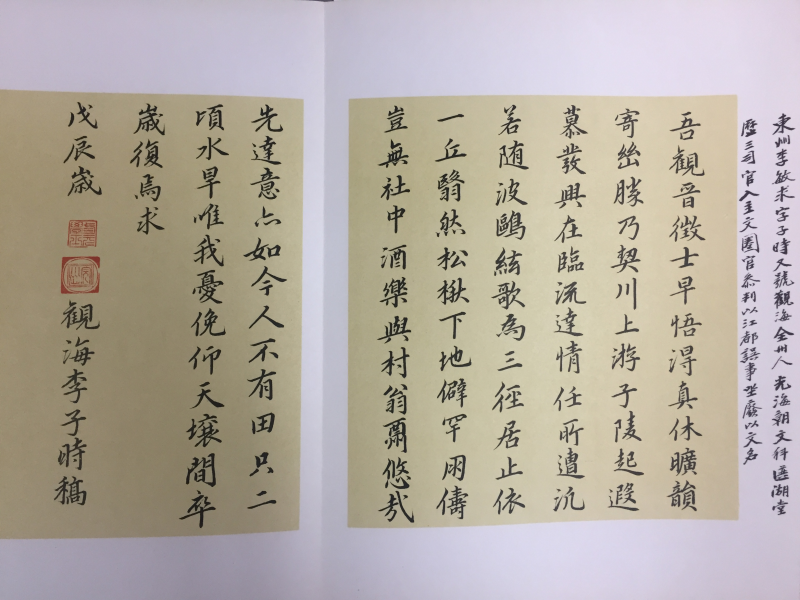 東州李敏求字子時又號觀海全州人 光海朝文科湖堂
歷三司官入主文圈官參判以江都誤事坐廢以文名
吾觀晋徵士早悟淂真休曠韻
寄幽勝乃契川上游子陵起遐
慕發興在臨流達情任所遭沆
若随波鷗絃歌為三徑居止依
一丘翳然松楸下地僻罕朋儔
豈無社中酒樂與村翁爾悠哉
先達意亦如今人不有田只二
頃水旱唯我憂俛仰天壤間卒
歳復焉求
戊辰歳 觀海李子時稿